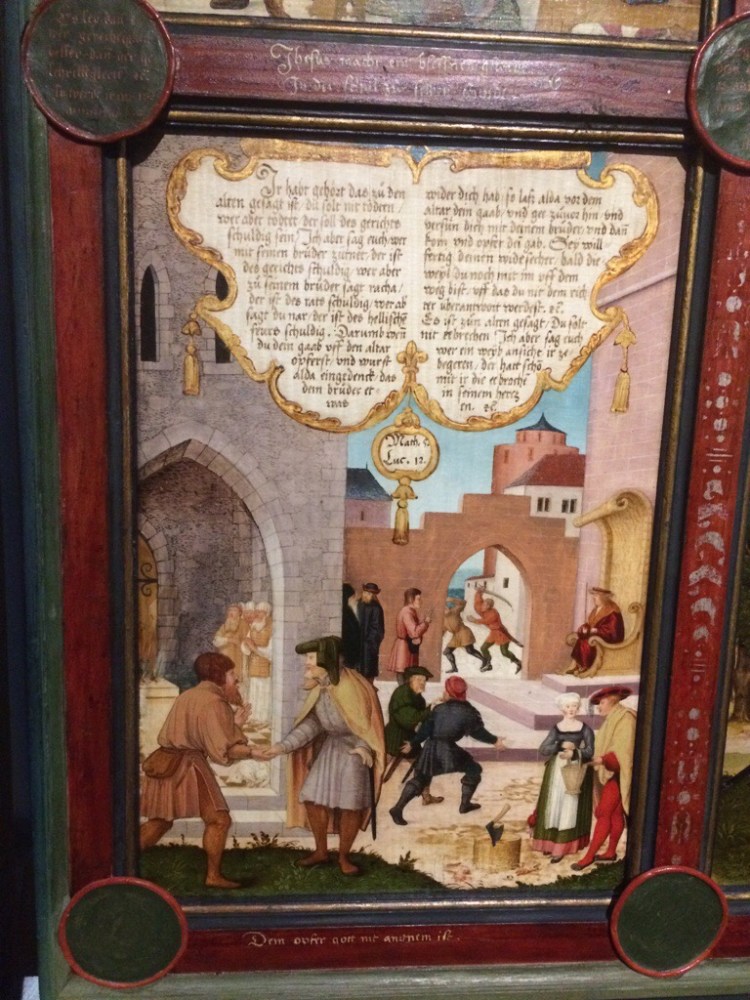 Jhesus macht ein
In der schul
Ir habt gehört das zů den
alten gesagt ist, du solt nit tödten /
wer aber tödtet der soll des gerichts
schuldig sein / Ich aber sag euch wer
mit seinen brůder zürnet, der ist
des gerichts schuldig, wer aber
zů seinem brůder sagt racha /
der ist des rats schuldig / wer ab
sagt du nar / der ist des hellisch
feurs schuldig. Darumb wen
du dein gaab uff den altar
opferst / und wurst
alda eingedenck das
dein brůder et-
was
wider dich hab / so laß alda vor dem
altar dein gaab / und gee zůvor hin und
versün dich mit deinem brůder, und dañ
kom und opfer dei gab. Sey will-
fertig deinen widersecher, bald die-
weyl du noch mit im uff dem
weg bist / uff das du nit dem rich
ter uberantwort werdest. ꝛc.
Es ist zün alten gesagt / Du solt
nit eebrechen Ich aber sag euch
wer ein weyb ansicht ir ze-
begeren, der hatt schö
mit ir die eebroche
in seinem hertz
en. ꝛc.
Math. 5.
Luc. 12.
Dem opfer gott nit anonem ist.